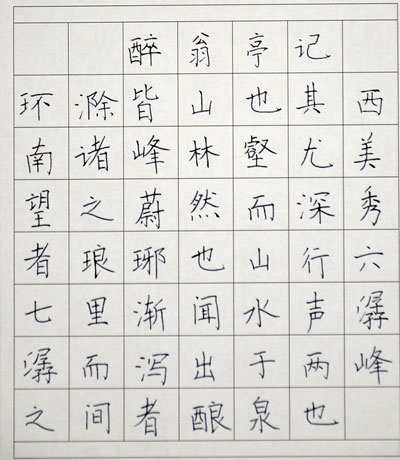 醉翁亭记
环滁皆山也其西
南诸峰林壑尤美
望之蔚然而深秀
者琅琊也山行六
七里渐闻水声潺
潺而泻出于两峰
之间者酿泉也